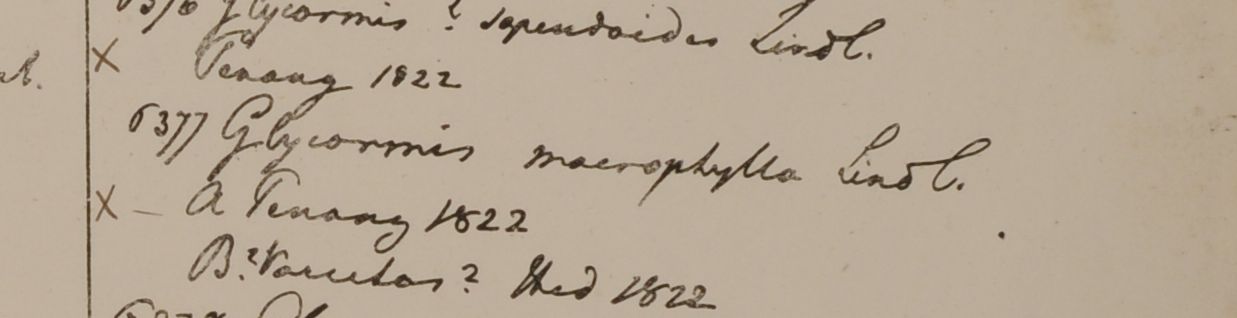 6376 Glycosmis ? sapindoides Lindl.
X Penang 1822
6377 Glycosmis macrophylla Lindl.
X – A Penang 1822
B? Varietas? Ibid 1822